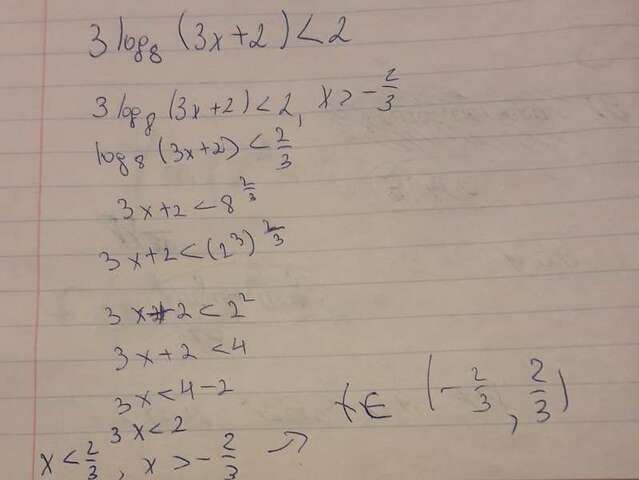 3 log₈ (3x+2) < 2
3 log₈ (3x+2) < 2, x > -2/3
log₈ (3x+2) < 2/3
3x+2 < 8^(2/3)
3x+2 < (2³)^(2/3)
3x+2 < 2²
3x+2 < 4
3x < 4-2
3x < 2
x < 2/3, x > -2/3 → x ∈ (-2/3, 2/3)